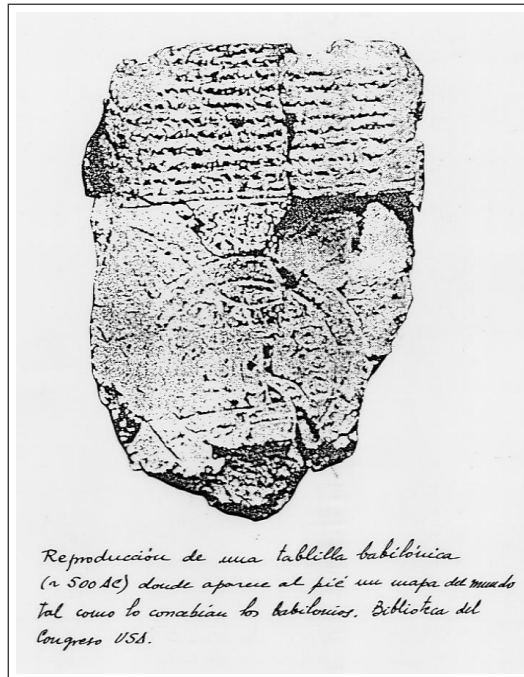 Reproducción de una tablilla babilónica
(~ 500 AC) donde aparece al pié un mapa del mundo
tal como lo concebian los babilonios. Biblioteca del
Congreso USA.